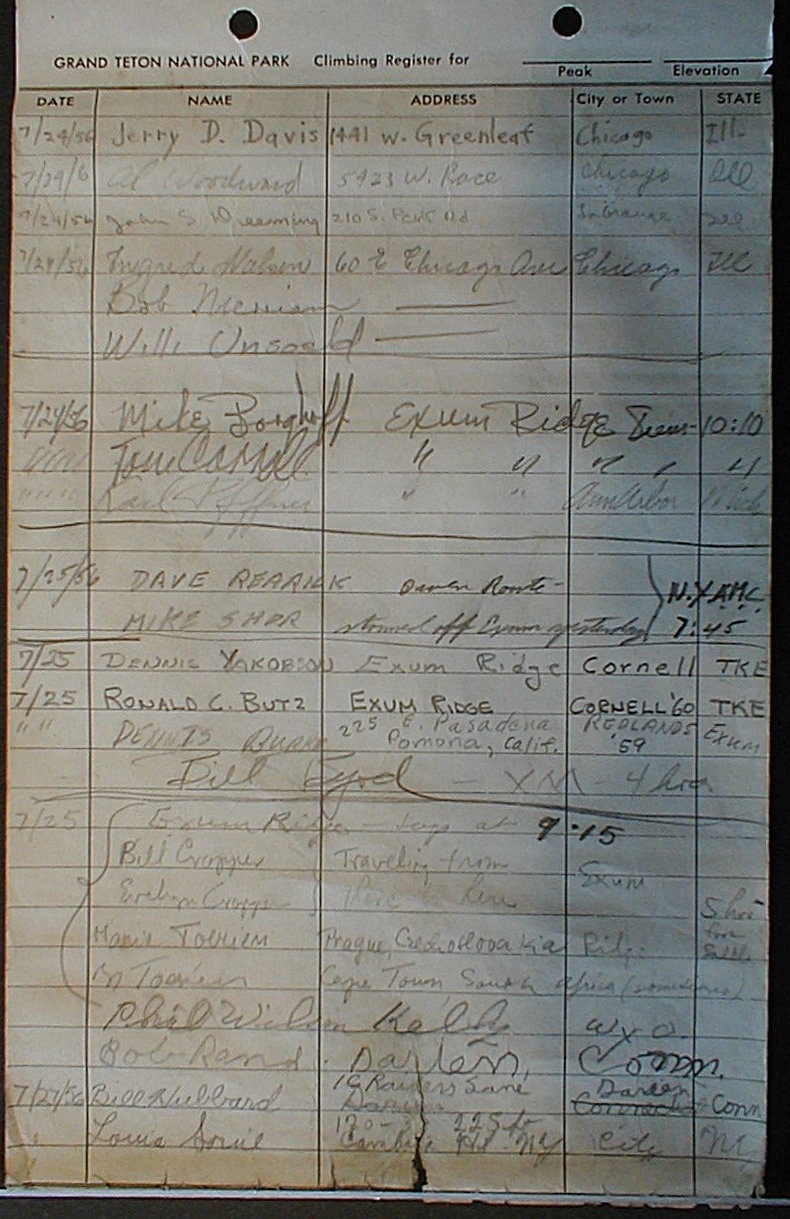 GRAND TETON NATIONAL PARK Climbing Register for
Peak Elevation
DATE NAME ADDRESS City or Town STATE
7/24/56 Jerry D. Davis 1441 W. Greenleaf Chicago Ill.
7/24/6 Al Woodward 5423 W. Race Chicago Ill
7/24/56 John S 210 S. Ill
7/24/56 Ingrid Nelson 60 E Chicago Ave Chicago Ill
Bob Merriam —
Willi Unsoeld —
7/24/56 Mike Borghoff Exum Ridge 10:10
" " Tom " " " " "
" " " Karl Pfeiffner " " Ann Arbor Mich
7/25/56 DAVE REARICK Owen Route - N.Y A.M.C.
MIKE SHOR stormed off Exum yesterday 7:45
7/25 DENNIS YAKOBSON Exum Ridge Cornell TKE
7/25 RONALD C. BUTZ EXUM RIDGE CORNELL '60 TKE
" " DENNIS BURKE 225 E. Pasadena REDLANDS Exum
Pomona, Calif. '59
Bill Byrd — XM — 4 hrs
7/25 Exum Ridge - at 9:15
Bill Cropper Traveling from Exum
Evelyn Cropper there to here 5 hrs
Toerien Prague, Czechoslovakia from
Toerien Cape Town South Africa (sometimes)
Phil Wilson Kelly Wyo.
Bob Rand. Darien, Conn.
7/27/56 Bill Hubbard 16 Raiders Lane Darien Conn
Darien Connecticut
" Louis 170- 225 St
Cambria Hts. NY City NY